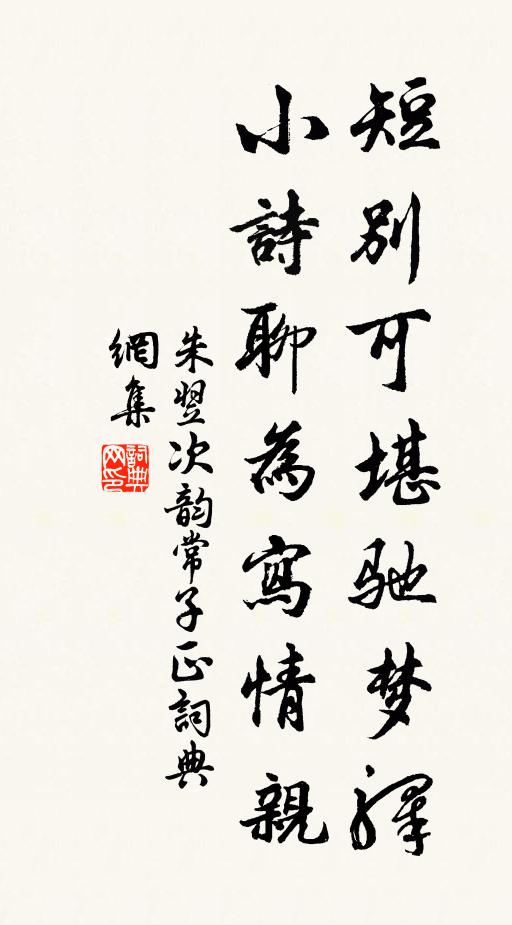 短别可堪驰梦驿
小詩聊為寫情親
朱翌次韵常子正詞典
網集
詞典網印